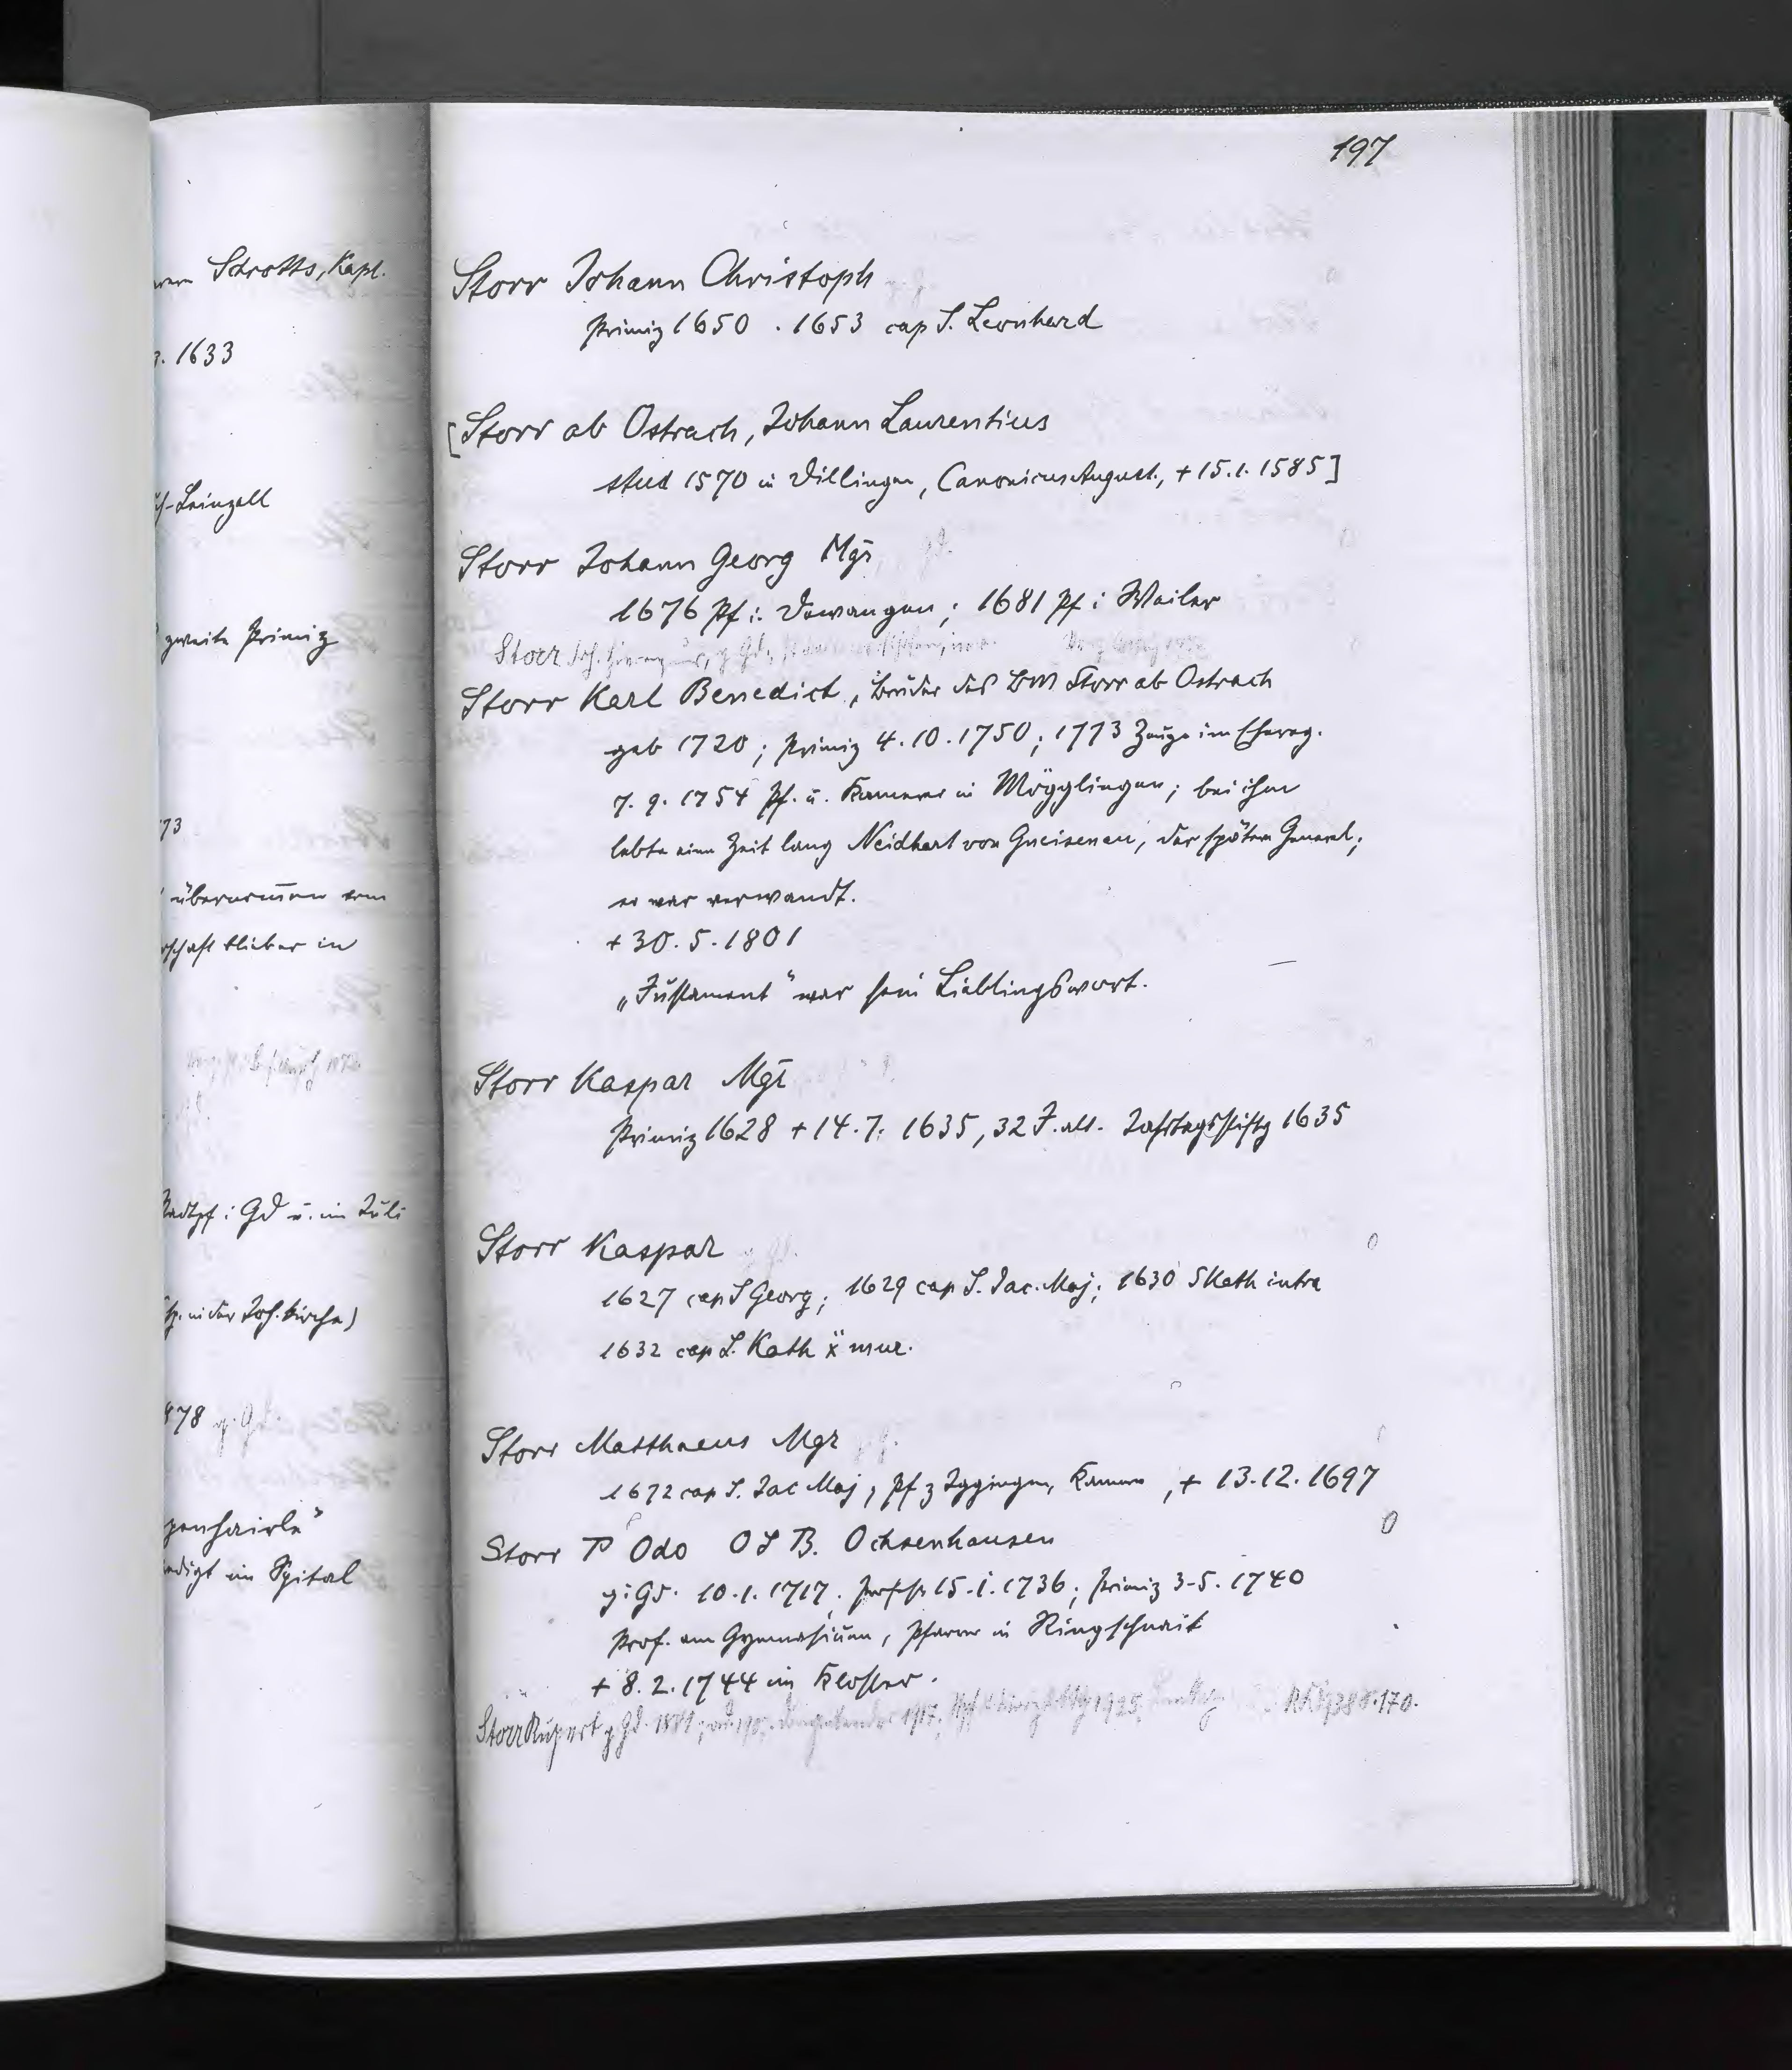 197
Schrotts, Kapl.
1633
-Leinzell
zweite Primiz
73
übernommen vom
in
Stadtpf i Gd u. im Juli
in der Joh. kirche)
878
im Spital
Storr Johann Christoph
Primiz 1650 . 1653 cap S. Leonhard
[Storr ab Ostrach, Johann Laurentius
stud 1570 in Dillingen, Canonicus August., + 15.1.1585]
Storr Johann Georg Mgr
1676 Pf i. Dewangen; 1681 Pf i Weiler
Storr Joh.
Storr Karl Benedict, Bruder des BM Storr ab Ostrach
geb 1720; Primiz 4.10.1750; 1773 Zeuge im Ehereg.
7.9.1754 Pf. u. Kamerer in Mögglingen; bei ihm
lebte eine Zeit lang Neidhart von Gneisenau, der spätere General;
er war verwandt.
+ 30.5.1801
„Justament" war sein Lieblingswort.
Storr Kaspar Mgr
Primiz 1628 + 14.7. 1635, 32 J. alt. Jahrtagsstiftg 1635
Storr Kaspar
1627 cap S Georg; 1629 cap S. Jac. Maj; 1630 S Kath intra
1632 cap S. Kath mur.
Storr Matthaeus Mgr
1672 cap S. Jac Maj, Pf z Iggingen, Kamerer, + 13.12.1697
Storr P Odo OSB. Ochsenhausen
g. i Gd. 10.1.1717; Profeß 15.1.1736; Primiz 3.5.1740
Prof. am Gymnasium, Pfarrer in Ringschnait
+ 8.2.1744 im Kloster.
Storr Rupert g Gd. 1917, 1925 170.